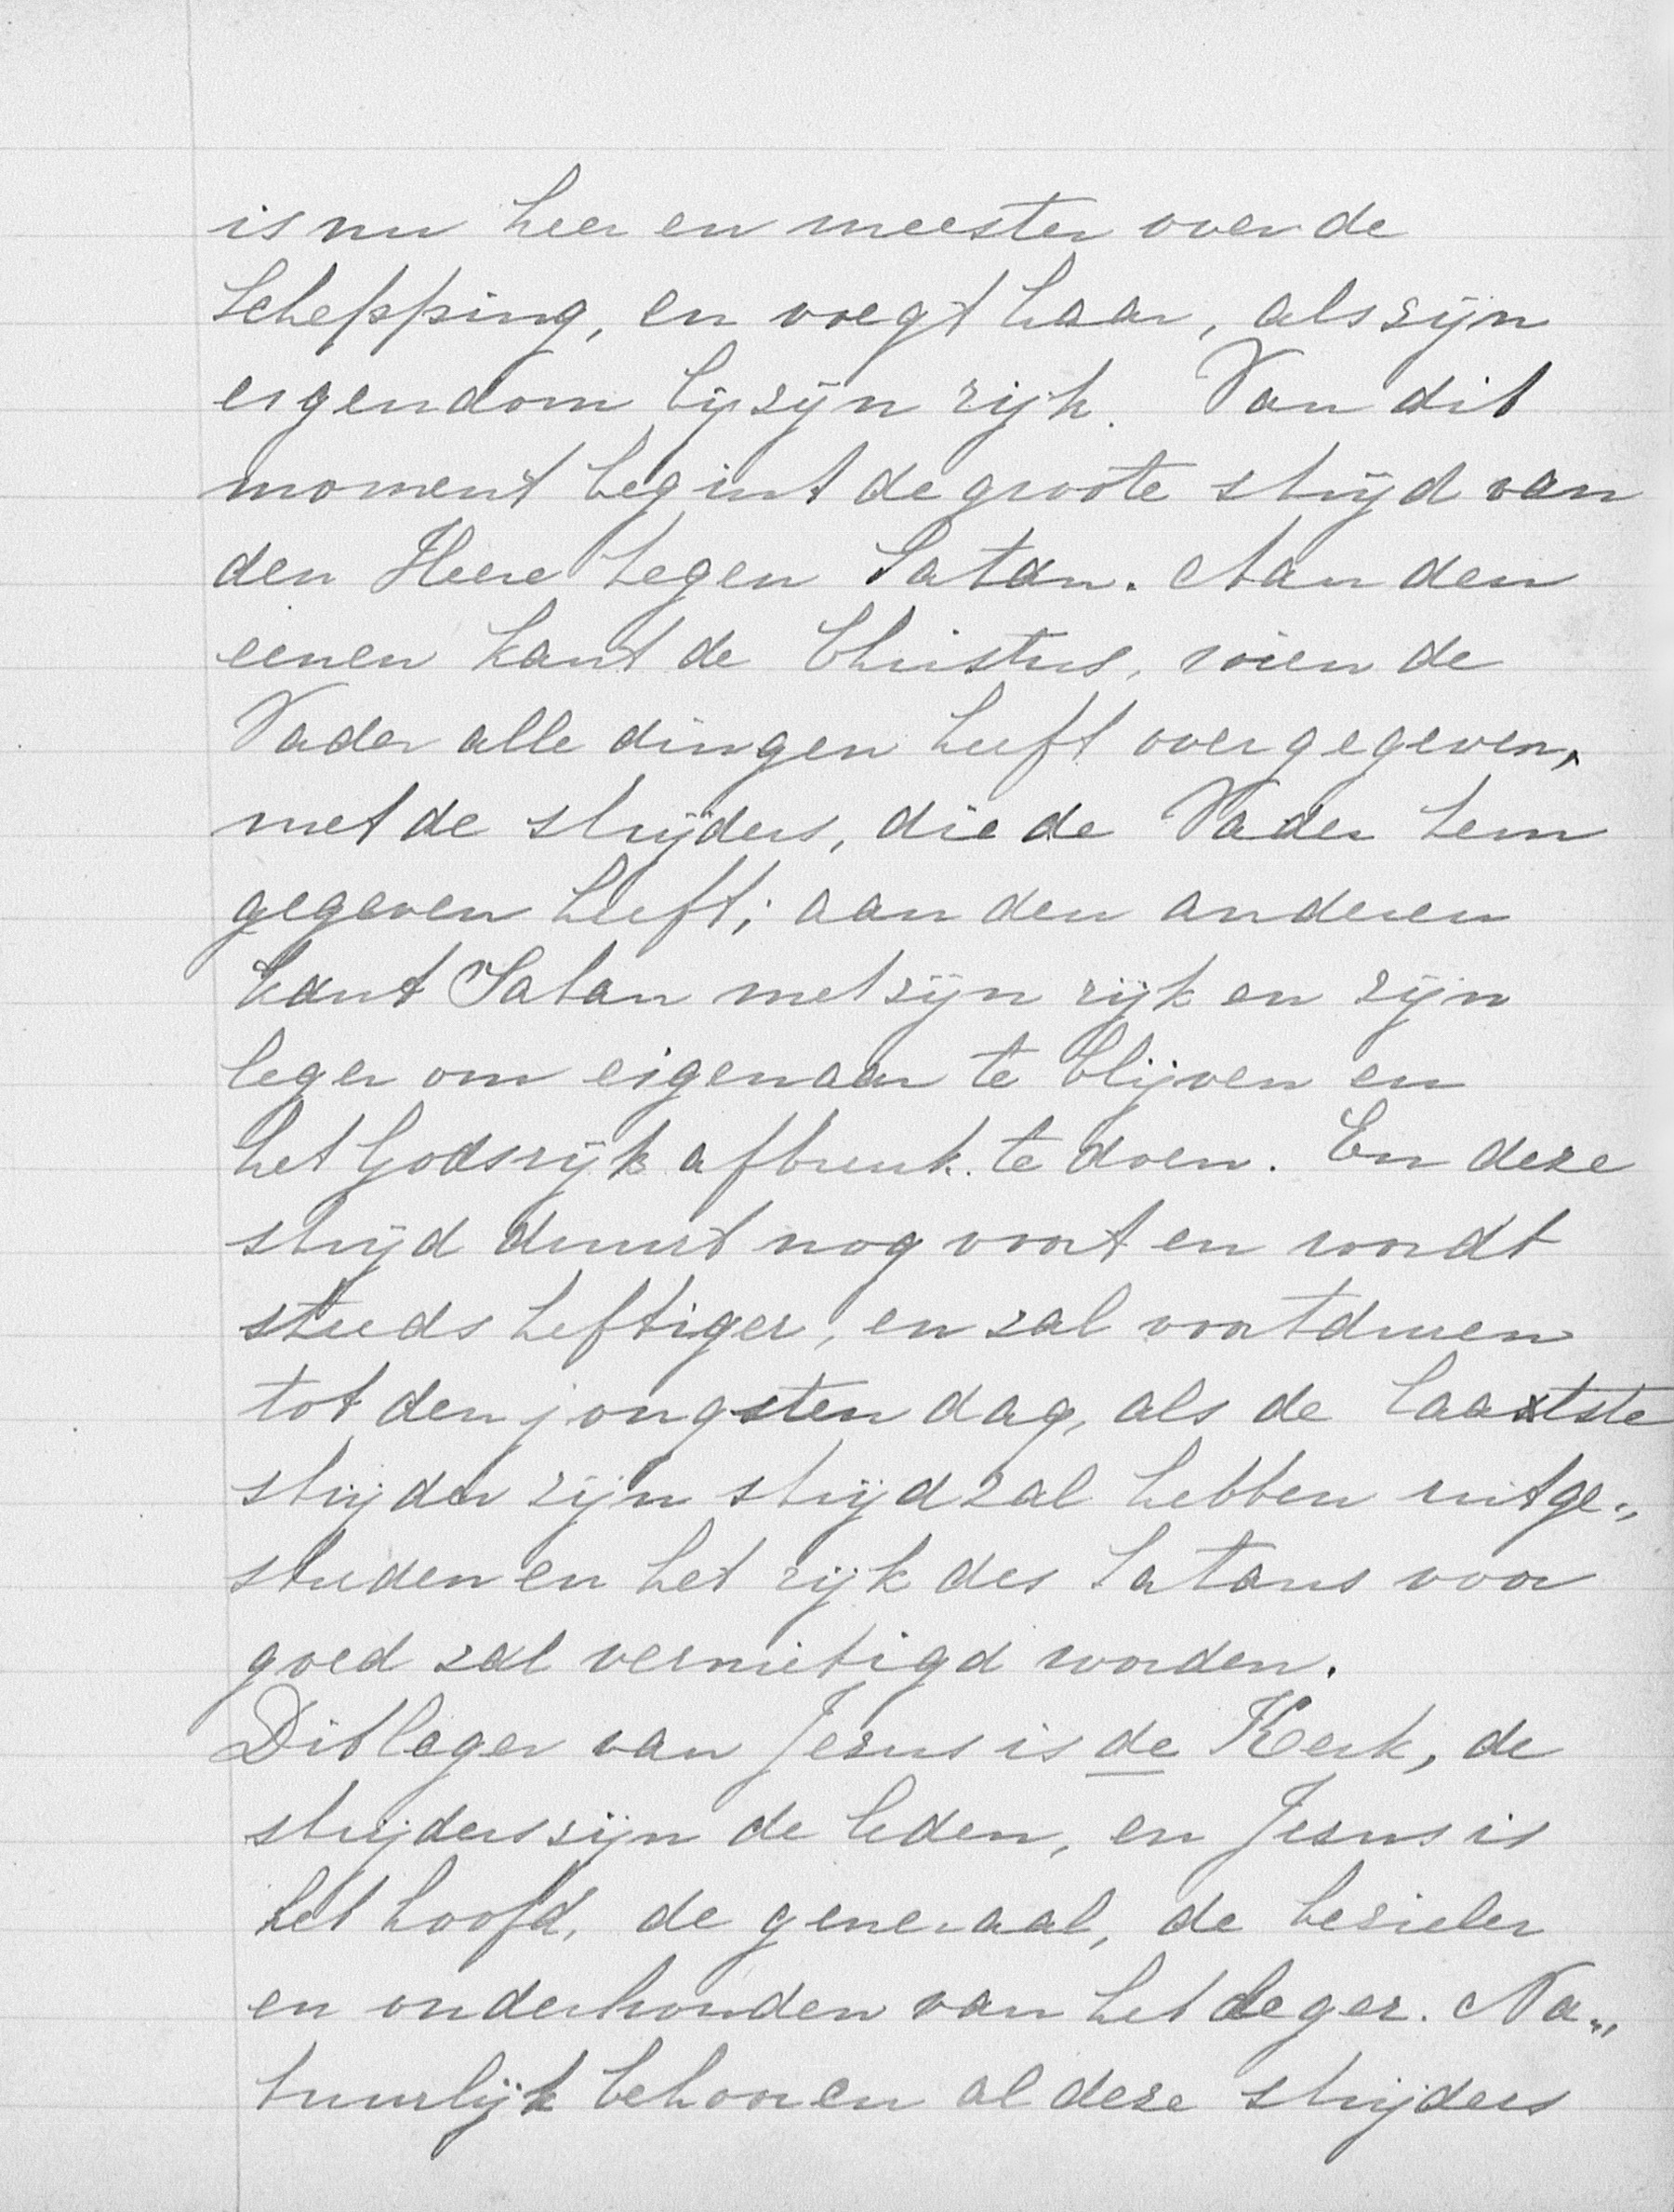 is nu heer en meester over de
schepping, en voegt haar, als zijn
eigendom bij zijn rijk. Van dit
moment begint de groote strijd van
den Heere tegen Satan. Aan den
eenen kant de Christus, wien de
Vader alle dingen heeft overgegeven,
met de strijders, die de Vader hem
gegeven heeft; aan den anderen
kant Satan met zijn rijk en zijn
leger om eigenaar te blijven en
het Godsrijk afbreuk te doen. En deze
strijd duurt nog voort en wordt
steeds heftiger, en zal voortduren
tot den jongsten dag, als de laatste
strijder zijn strijd zal hebben uitge„
streden en het rijk des Satans voor
goed zal vernietigd worden.
Dit leger van Jezus is de Kerk, de
strijders zijn de leden, en Jezus is
het hoofd, de generaal, de bezieler
en onderhouden van het leger. Na„
tuurlijk behooren al deze strijders